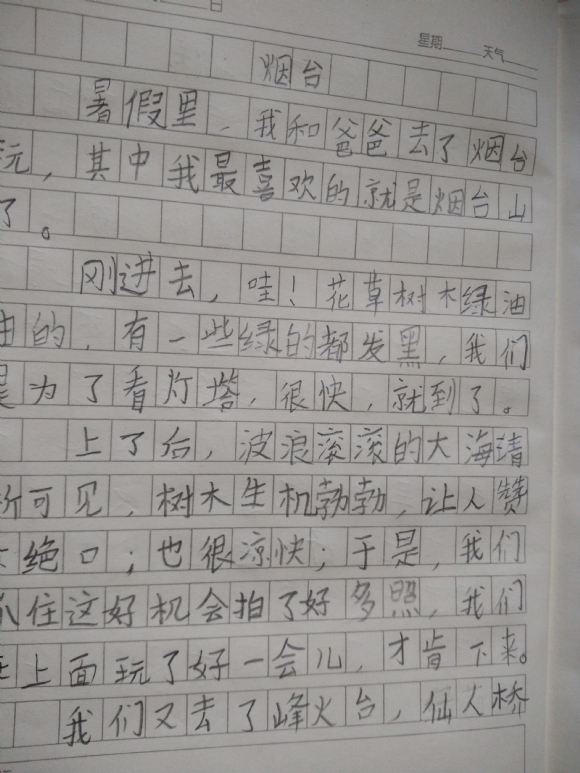 日
星期 天气
烟台
暑假里，我和爸爸去了烟台
玩，其中我最喜欢的就是烟台山
了。
刚进去，哇！花草树木绿油
油的，有一些绿的都发黑，我们
是为了看灯塔，很快，就到了。
上了后，波浪滚滚的大海清
晰可见，树木生机勃勃，让人赞
不绝口；也很凉快；于是，我们
抓住这好机会拍了好多照，我们
在上面玩了好一会儿，才肯下来。
我们又去了峰火台，仙人桥